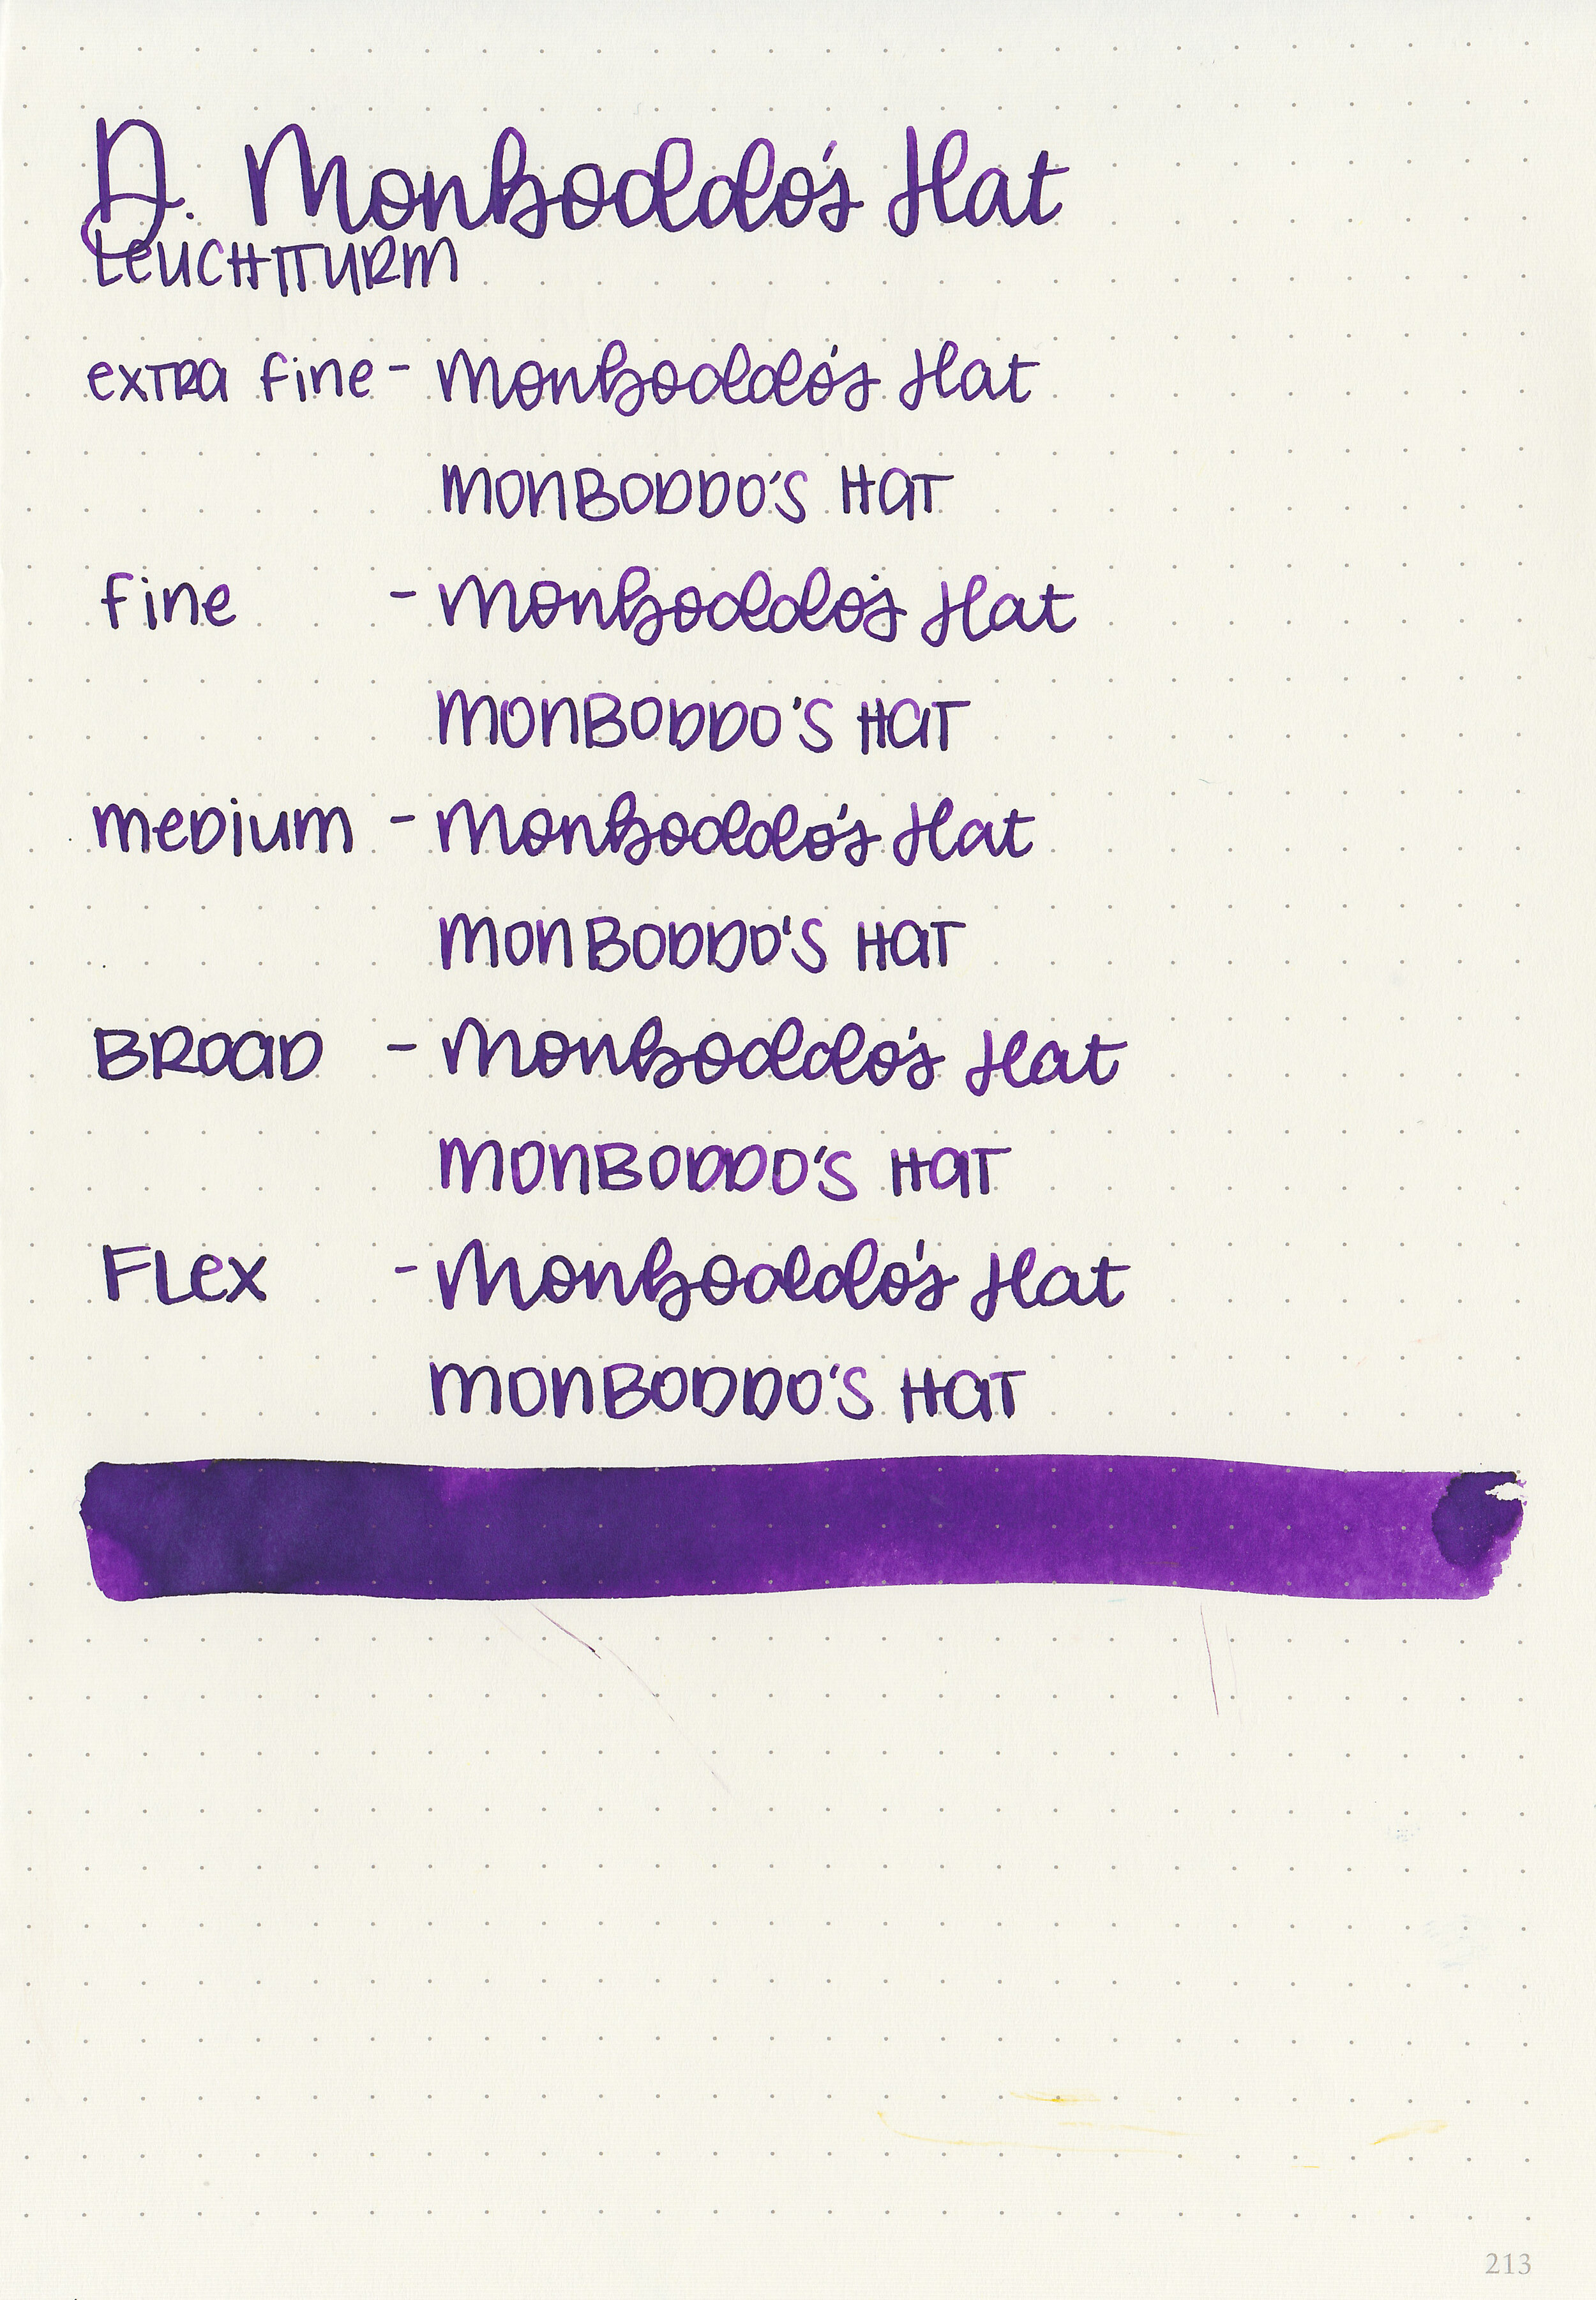 D. Monboddo's Hat
LEUCHTTURM
extra fine - Monboddo's Hat
MONBODDO'S HAT
fine - Monboddo's Hat
MONBODDO'S HAT
medium - Monboddo's Hat
MONBODDO'S HAT
BROAD - Monboddo's Hat
MONBODDO'S HAT
FLex - Monboddo's Hat
MONBODDO'S HAT
213